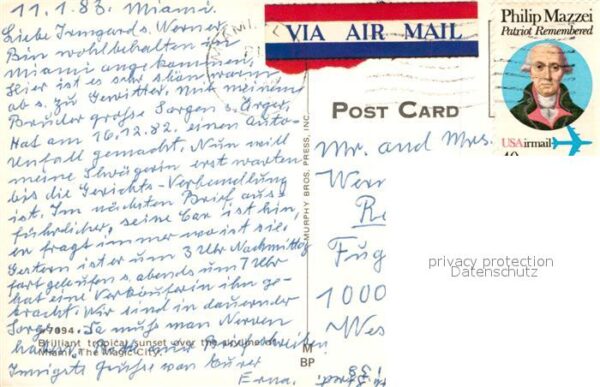 11.1.83. Miami.
Liebe Irmgard u. Werner
Bin wohlbehalten in
Miami angekommen,
Hier ist es sehr schön warm,
ab u. zu Gewitter. Mit meinem
Bruder große Sorgen u. Ärger,
Hat am 16.12.82. einen Auto-
Unfall gemacht. Nun will
meine Schwägerin erst warten
bis die Gerichts-Verhandlung
ist. Im nächsten Brief aus-
führlicher, seine Car ist hin,
er fragt immer wo ist sie.
Gestern ist er um 3 Uhr Nachmittag
fort gelaufen u. abends um 7 Uhr
hat eine Verkäuferin ihn ge-
bracht. Wir sind in dauernder
Sorge. Da muß man Nerven
haben.
Innigste Grüße von Eurer
Erna.
7094
Brilliant tropical sunset over the skyline of
Miami, The Magic City.
MURPHY BROS. PRESS, INC.
M
BP
VIA AIR MAIL
Philip Mazzei
Patriot Remembered
USAirmail
40
POST CARD
Mr. and Mrs.
Wern
Re
Fug
1000
Wes
privacy protection
Datenschutz